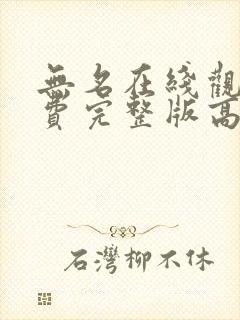 無名在綫觀
費完整版高
石灣柳不休